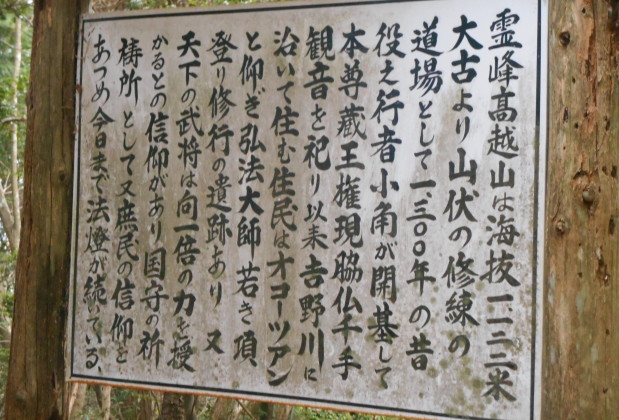 霊峰高越山は海抜一一二二米
大古より山伏の修練の
道場として一三〇〇年の昔
役之行者小角が開基して
本尊蔵王権現脇仏千手
観音を祀り以来吉野川に
沿いて住む住民はオコーツアン
と仰ぎ弘法大師若き頂、
登り修行の遺跡あり又
天下の武将は向一倍の力を授
かるとの信仰があり国守の祈
祷所として又庶民の信仰を
あつめ今日まで法燈が続いている、